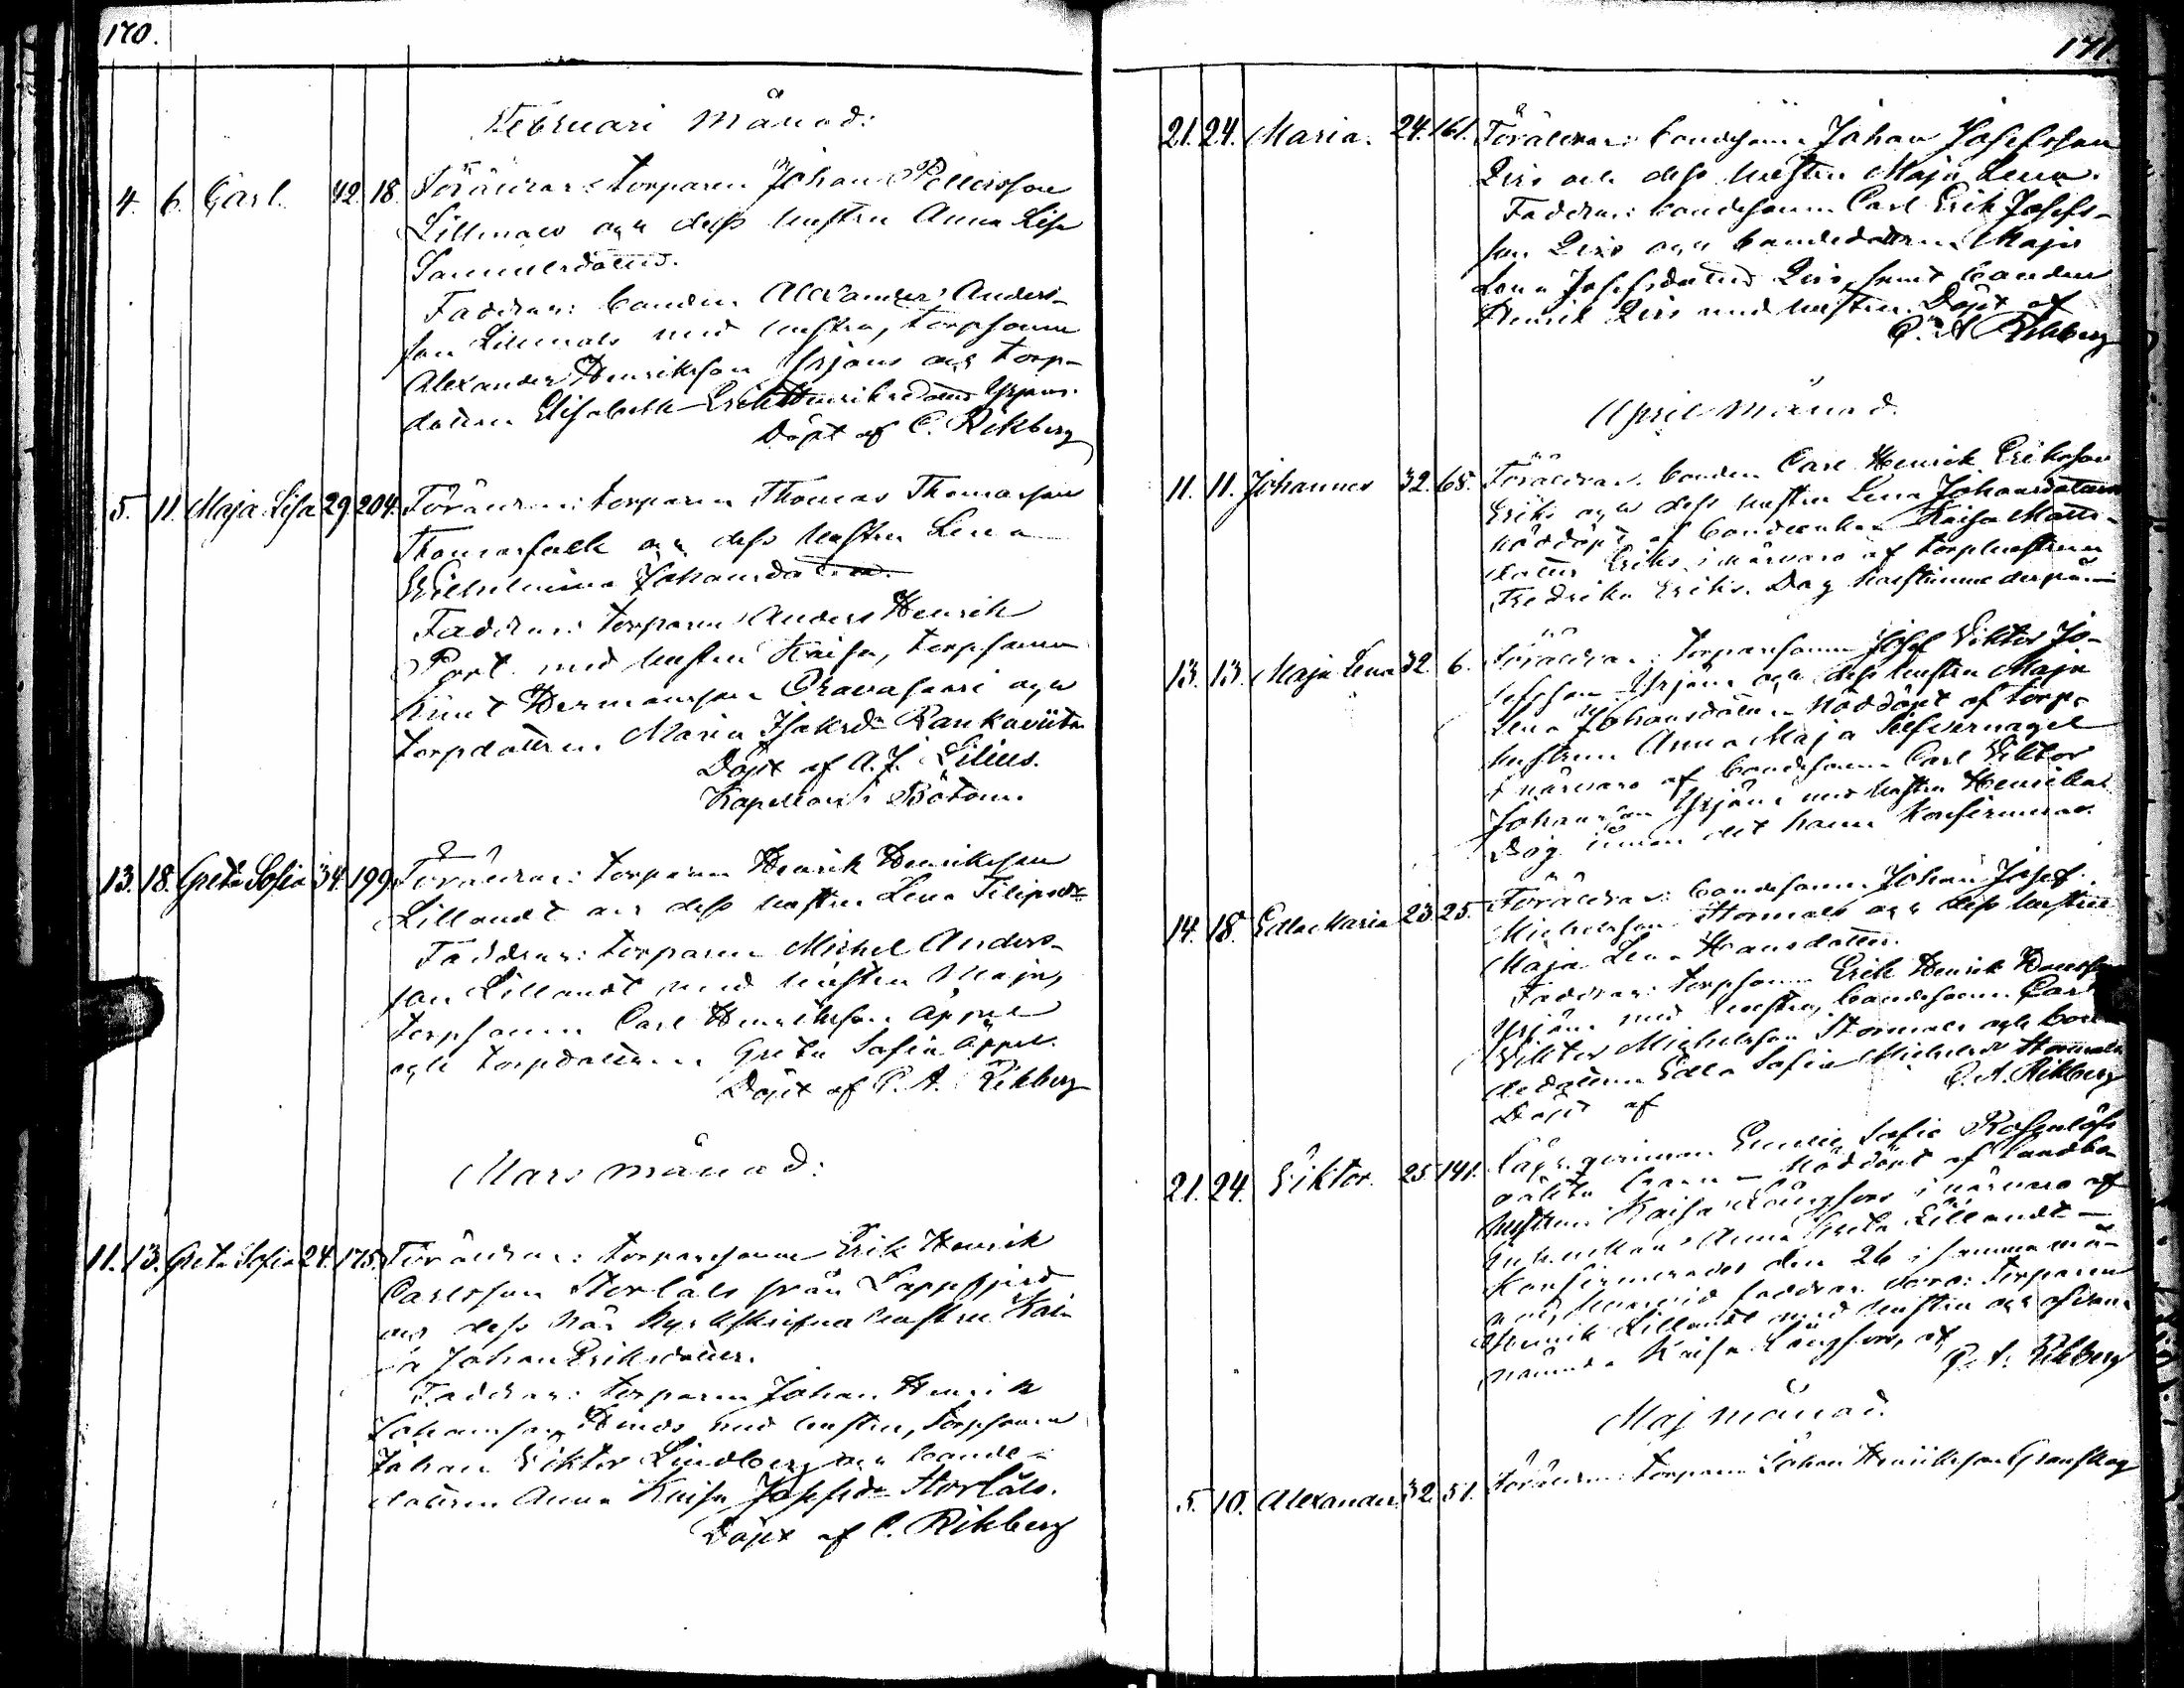 170.
Februari Månad:
4. 6. Carl. 42 18. Föräldrar: torparen Johan Petterson
Lillmals och dess hustru Anna Lisa
Samuelsdotter.
Faddrar: bonden Alexander Anders-
son Lillmals med hustru, torpsonen
Alexander Henriksson Yrjans och torp-
dottern Elisabeth Erik Henriksdotter Yrjans.
Döpt af C. Rikberg
5. 11. Maja Lisa 29 204. Föräldrar: torparen Thomas Thomasson
Thomasfolk och dess hustru Lena
Wilhelmina Johansdotter.
Faddrar: torparen Anders Henrik
Port med hustru Kaisa, torpsonen
Knut Hermansson Oravasaari och
torpdottern Maria Isaksdr Rankaviita
Döpt af A. J. Lilius.
Kapellan i Bötom.
13. 18. Greta Sofia 34. 199. Föräldrar: torparen Henrik Henriksson
Lillandt och dess hustru Lena Filipsdr
Faddrar: torparen Michel Anders-
son Lillandt med hustru Maja,
torpsonen Carl Henriksson Äppel
och torpdottern Greta Sofia Äppel.
Döpt af C. A. Rikberg
Mars månad:
11. 13. Greta Sofia 24. 175. Föräldrar: torparesonen Erik Henrik
Carlsson Storlåls från Lappfjerd
och dess här kyrkskrifna hustru Kai-
sa Johan Eriksdotter.
Faddrar: torparen Johan Henrik
Johansson Hinds med hustru, torpsonen
Johan Viktor Lindberg och bonde-
dottren Anna Kaisa Josefsdr Storlåls.
Döpt af C. Rikberg
171.
21. 24. Maria. 24. 161. Föräldrar: bondesonen Johan Josefsson
och dess hustru Maja Lena.
Faddrar: bondesonen Carl Erik Josefs-
son och bondedottren Maja
Lena Josefsdotter samt bonden
Henrik med hustru. Döpt af
C. A. Rikberg
April månad.
11. 11. Johannes 32. 68. Föräldrar: bonden Carl Henrik Eriksson
Eriks och dess hustru Lena Johansdotter
nöddöpt af bondeenkan Kaisa Matts-
dotter Eriks i närvaro af torphustrun
Fredrika Eriks. Dog derpå.
13. 13. Maja Lena 32. 6. Föräldrar: torparesonen Josef Viktor Jo-
sefsson Yrjans och dess hustru Maja
Lena Johansdotter. Nöddöpt af torp-
hustrun Anna Maja Silfvernagel
i närvaro af bondesonen Carl Viktor
Johansson Yrjans med hustru Henrika.
Dog innan det hann konfirmeras.
14. 18. Edla Maria 23. 25. Föräldrar: bondesonen Johan Josef
Michelsson Stormals och dess hustru
Maja Lena Hansdotter.
Faddrar: torpsonen Erik Henrik
Yrjans med hustru, bondesonen Carl
Viktor Michelsson Stormals och bon-
dedottern Edla Sofia Michelsdr Stormals
Döpt af C. A. Rikberg
21. 24. Viktor. 25. 141. Emelie Sofia Rosenlöfs
oäkta barn – Nöddöpt af
hustrun Kaisa Långfors i närvaro af
Anna Greta Lillandt –
Konfirmerades den 26 i samma må-
nad, hvarvid faddrar voro: torparen
Henrik Lillandt med hustru och ofvan-
nämnda Kaisa Långfors, af
C. A. Rikberg
Maj månad.
5. 10. Alexander 32. 51. Föräldrar: torparen Johan Henriksson Granskog